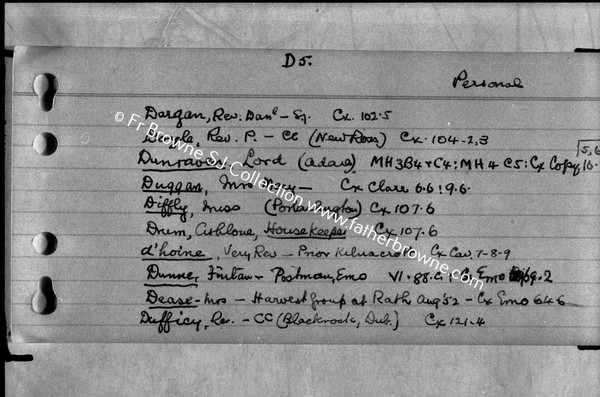 D5.
Personal
Dargan, Rev. Danl - SJ. Cx. 102.5
Rev. P. - CC (New Ross) Cx. 104.2,3
5,6
Dunraven, Lord (Adare) MH3B4+C4: MH4 C5: Cx Copy, 16.
Duggan, Mrs Mary - Cx Clare 6.6! 9.6.
Diffly, Miss (Portarlington) Cx 107.6
Drum, Ashlone, Housekeeper Cx 107.6
d'hoine, Very Rev - Prior Kilnacrott Cx Cav. 7-8-9
Dunne, Fintan - Postman, Emo VI.88.C: Cx Emo 69.2
Dease - Mrs - Harvest group at Rath Aug '52 - Cx Emo 646
Dufficy, Rev. - CC (Blackrock, Dub.) Cx 121.4
© Fr Browne SJ Collection www.fatherbrowne.com